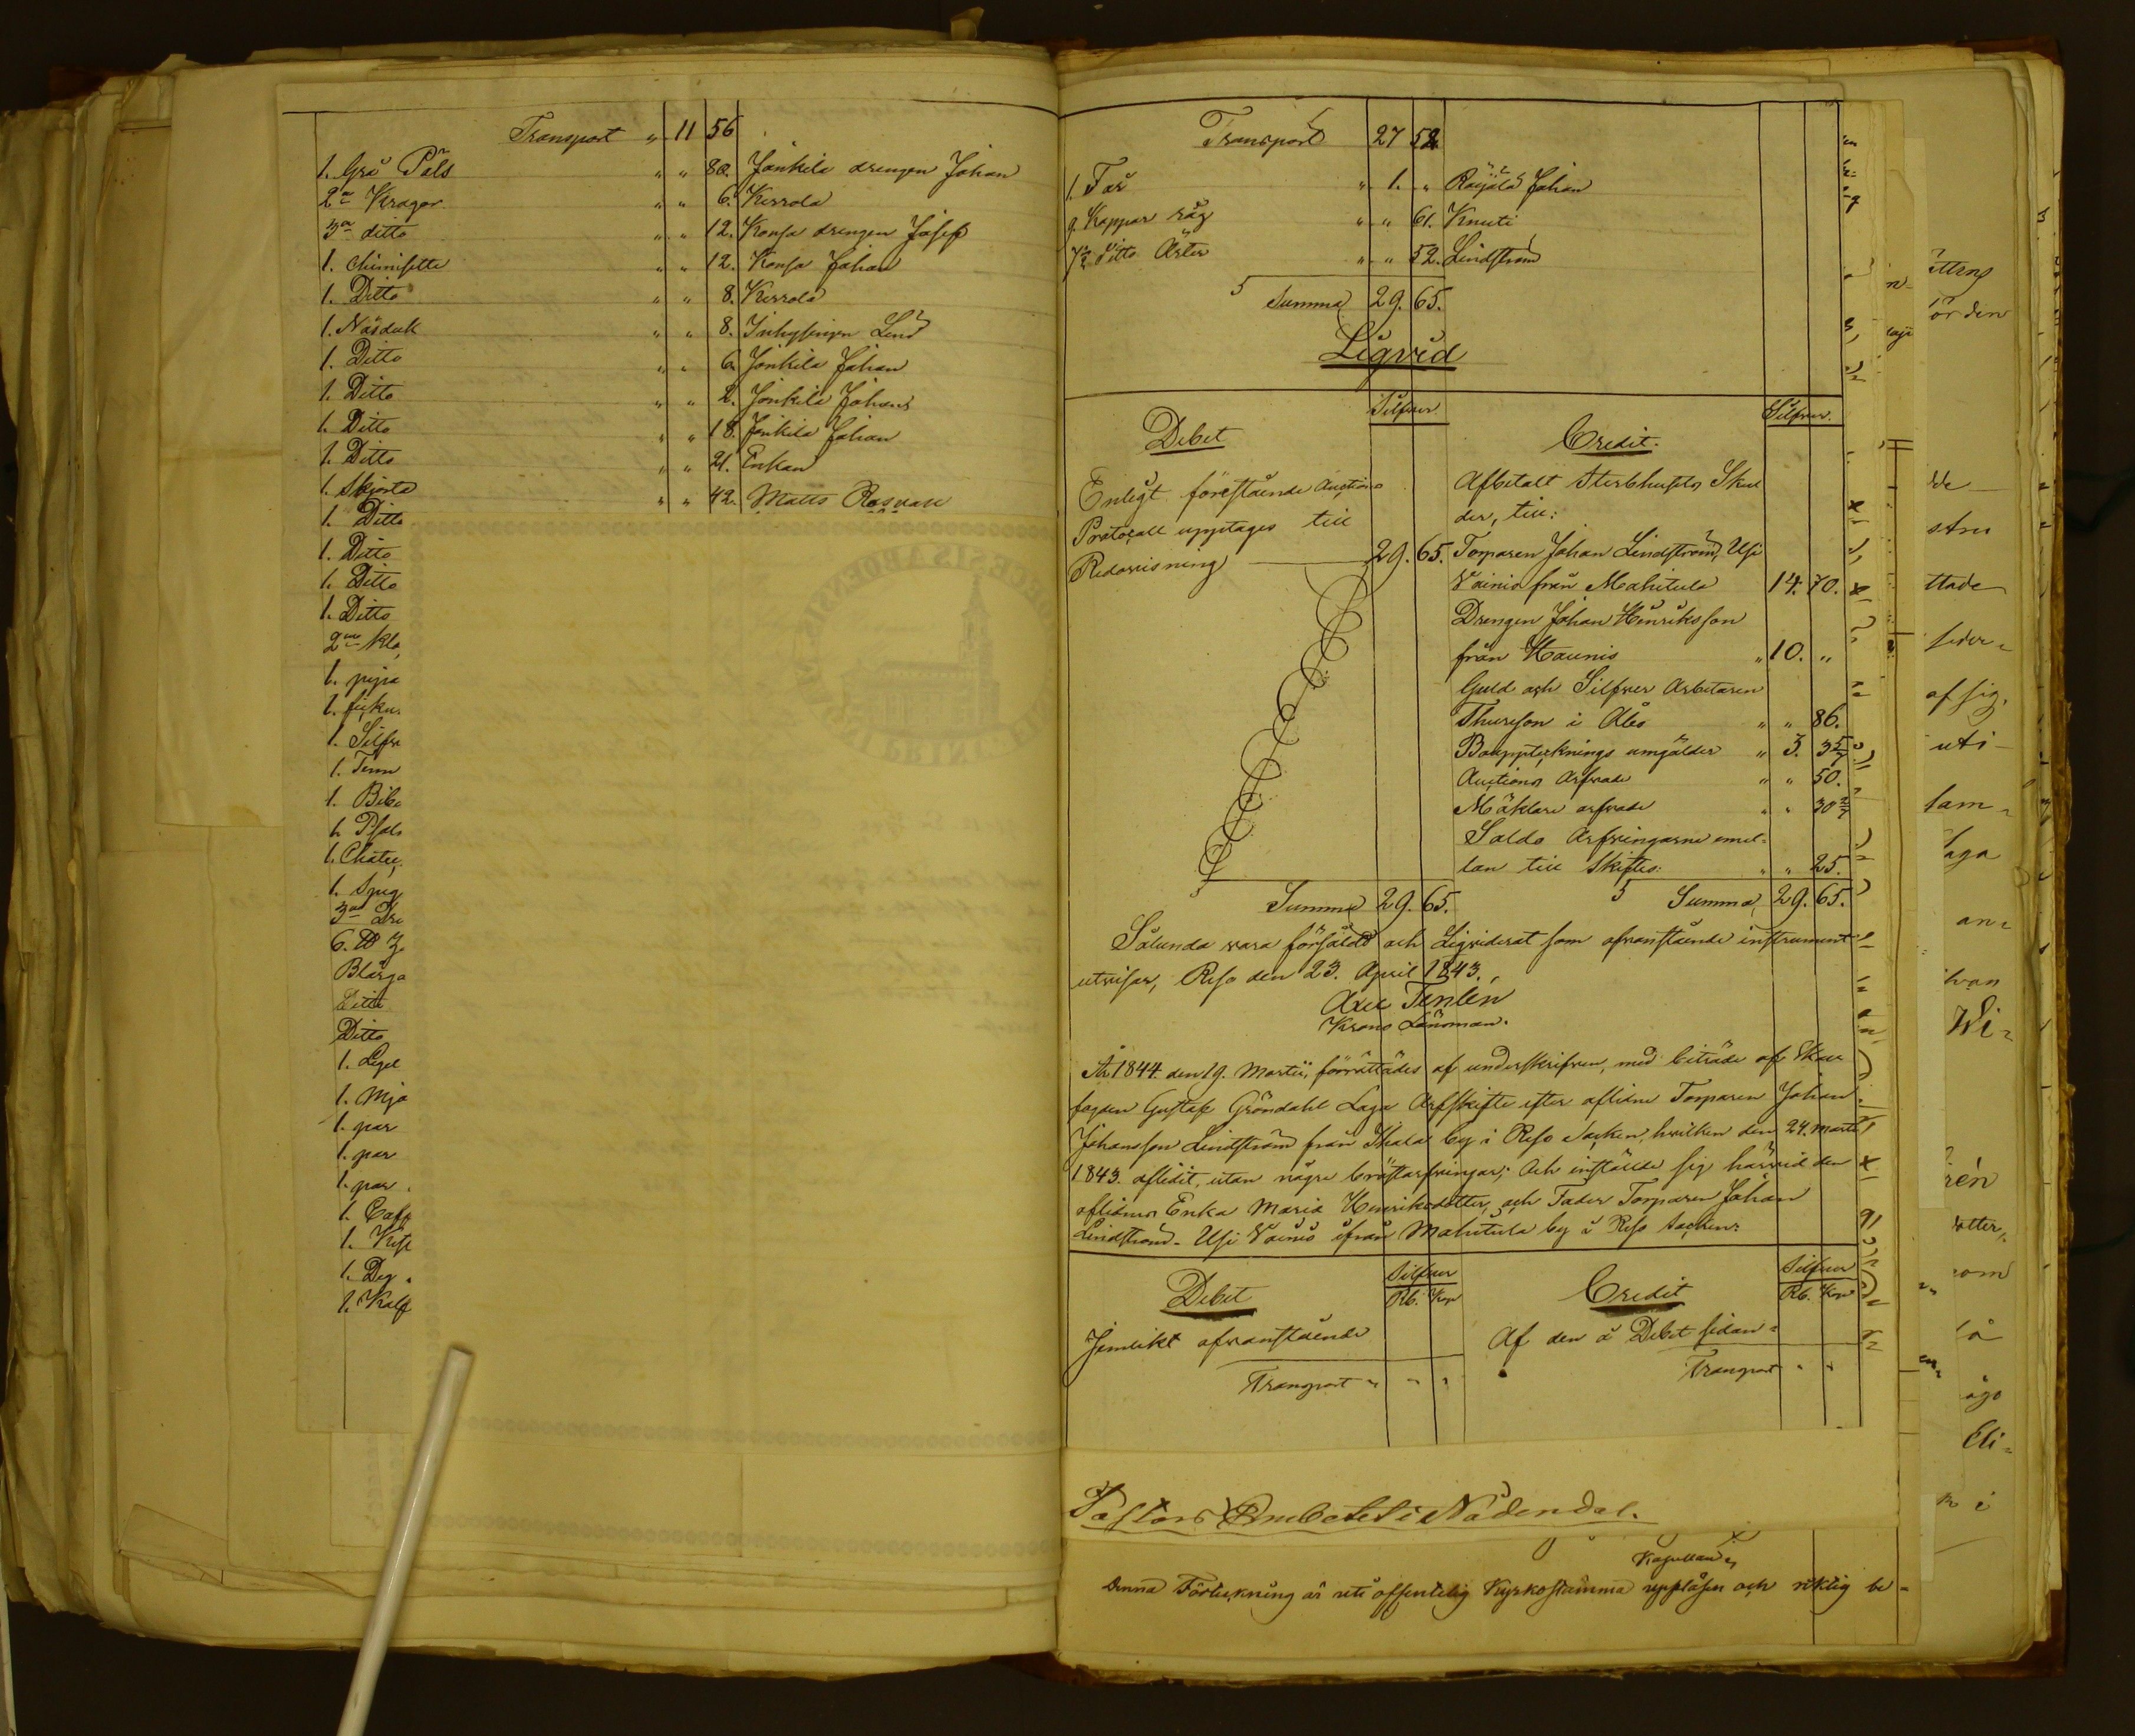 Transport " 11 56
1. Grå Päls " " 80. Jonkila drengen Johan
2ne Kragor " " 6. Kerrola
3ne ditto " " 12. Konsa drengen Josef
1. Chimisette " " 12. Konsa Johan
1. Ditto " " 8. Kerrola
1. Näsduk " " 8. Inhysingen Lind
1. Ditto " " 6. Jonkila Johan
1. Ditto " " 2. Jonkila Johans
1. Ditto " " 18. Jonkila Johan
1. Ditto " " 21. Enkan
1. Skjorta " " 42. Matts
1. Ditto
1. Ditto
1. Ditto
1. Ditto
2ne Klä
1. pipa
1. fick
1. Silfv
1. Tenn
1. Bibe
1. Psal
1. Chatu
1. Speg
3ne
6. ℔
Blårga
Ditto
Ditto
1. Legel
1. Mjö
1. par
1. par
1. par
1. Caff
1. Kist
1. Deg
1. Kalf
Transport 27 52
1. Får " 1. " Raijala Johan
9. Kappar råg " " 61. Knuti
7½ ditto Ärter " " 52. Lindström
Summa 29. 65.
Liqvid
Silfver. Silfver.
Debet Credit.
Enligt förestående Auctions
Protocoll upptages till
Redovisning 29. 65.
Afbetalt Sterbhusets Skul
der, till:
Torparen Johan Lindström, Usi
Vainio från Mahitula 14. 70.
Drengen Johan Henriksson
från Haunis " 10. "
Guld och Silfver Arbetaren
Thureson i Åbo " " 86.
Bouppteknings umgälder " 3. 3 5/7
Auctions Arfvode " " 50.
Mäklare arfvode " " 30 2/7
Saldo Arfvingarne emel-
lan till Skiftes: " " 25.
Summa 29. 65. Summa, 29. 65.
Sålunda vara försåldt och Liqviderat som ofvanstående instrument
utvisar, Reso den 23. April 1843.
Axel Tenlén
Krono Länsman.
År 1844. den 19. Martii, förrättades af underskrifven, med biträde af Skat
fogden Gustaf Gröndahl Laga Arfskifte efter aflidne Torparen Johan
Johansson Lindström från Ihala by i Reso Socken, hvilken den 24. Martii
1843. aflidit, utan några bröstarfvingar; Och inställde sig härvid den
aflidnes Enka Maria Henriksdotter, och Fader Torparen Johan
Lindström. Usi Vainio ifrån Mahitula by i Reso socken:
Debet Silfver Rb. Kop Credit Silfver Rb. Kop
Jemlikt ofvanstående Af den å Debet sidan
Transport " " " Transport " "
Pastors Embetet i Nådendal.
Kapellan
Denna Förtekning är uti offentelig Kyrkostämma uppläsen och riktig be-
ör den
stru
ttade
af sig.
uti
sam-
laga
an-
Wi-
rén
otter,
som
så
ågo
Eli-